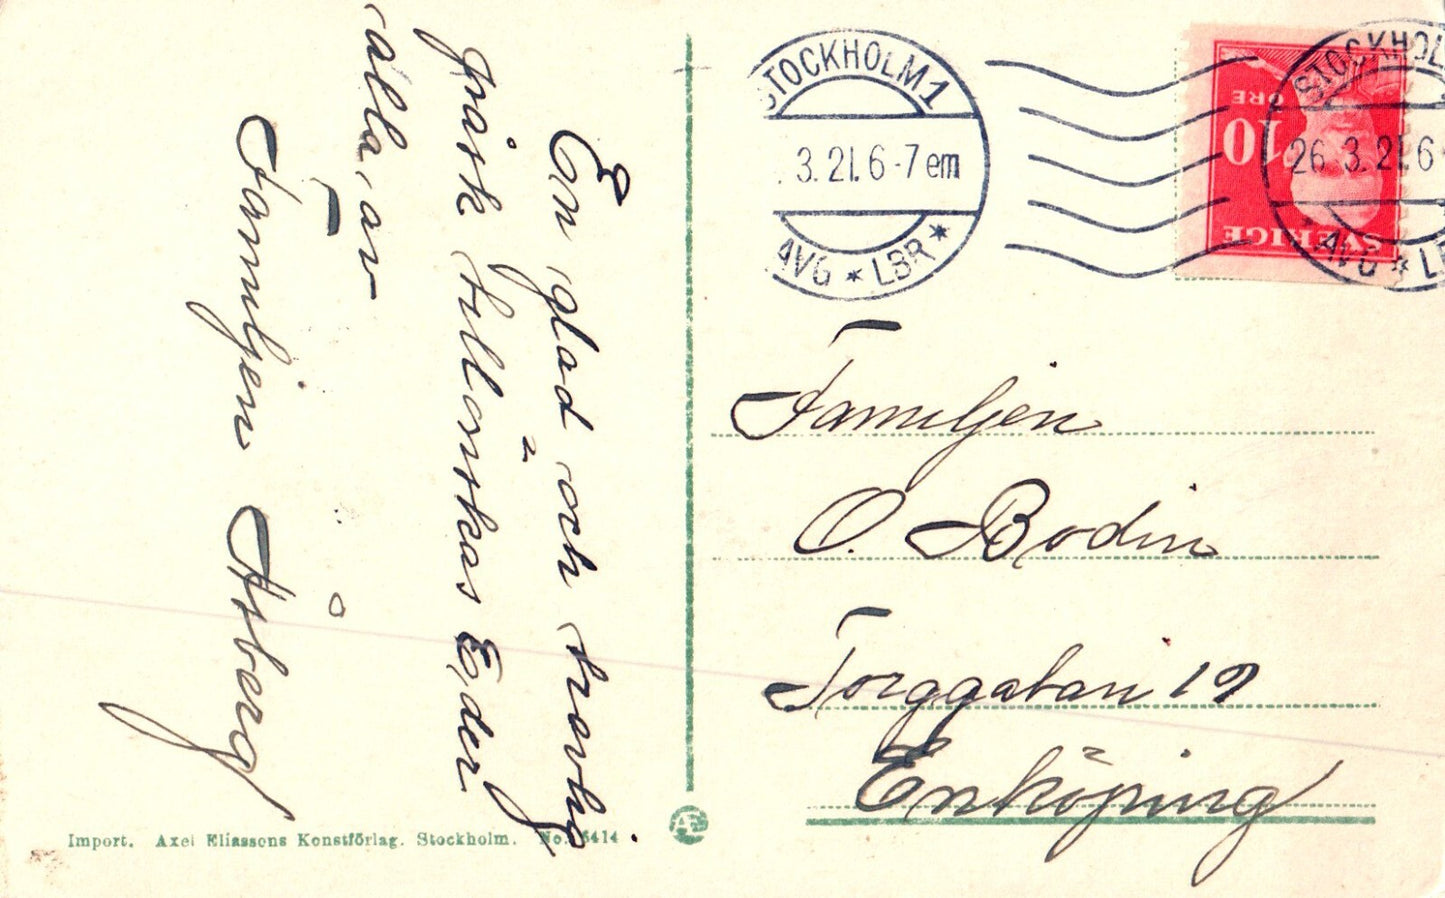 STOCKHOLM 1
. 3. 21. 6-7 em
AVG * LBR *
ÖRE
10
SVERIGE
STOCKHOL
26 3. 21. 6-
AVG * L
En glad och trevlig
påsk tillönskas Eder
alla, av
Familjen Åsberg
Familjen
O. Bodin
Torggatan 19
Enköping
Import. Axel Eliassons Konstförlag. Stockholm. No. 6414
AE